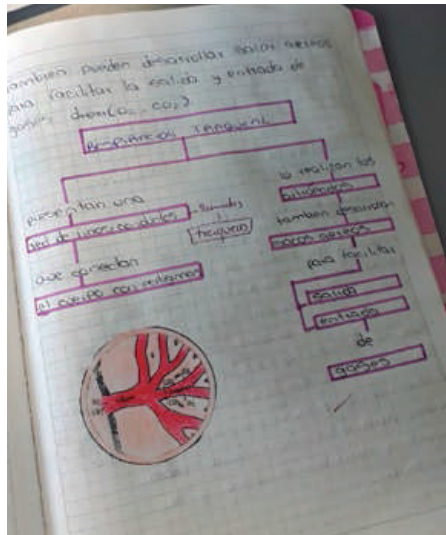 también pueden desarrollar sacos aereos
para facilitar la salida y entrada de
gases (O₂, CO₂)
RESPIRACIÓN TRAQUEAL
presentan una
red de conductos
llamados
traqueas
que conectan
al cuerpo con
lo realizan los
tambien desarrollan
sacos aereos
para facilitar
salida
entrada
de
gases